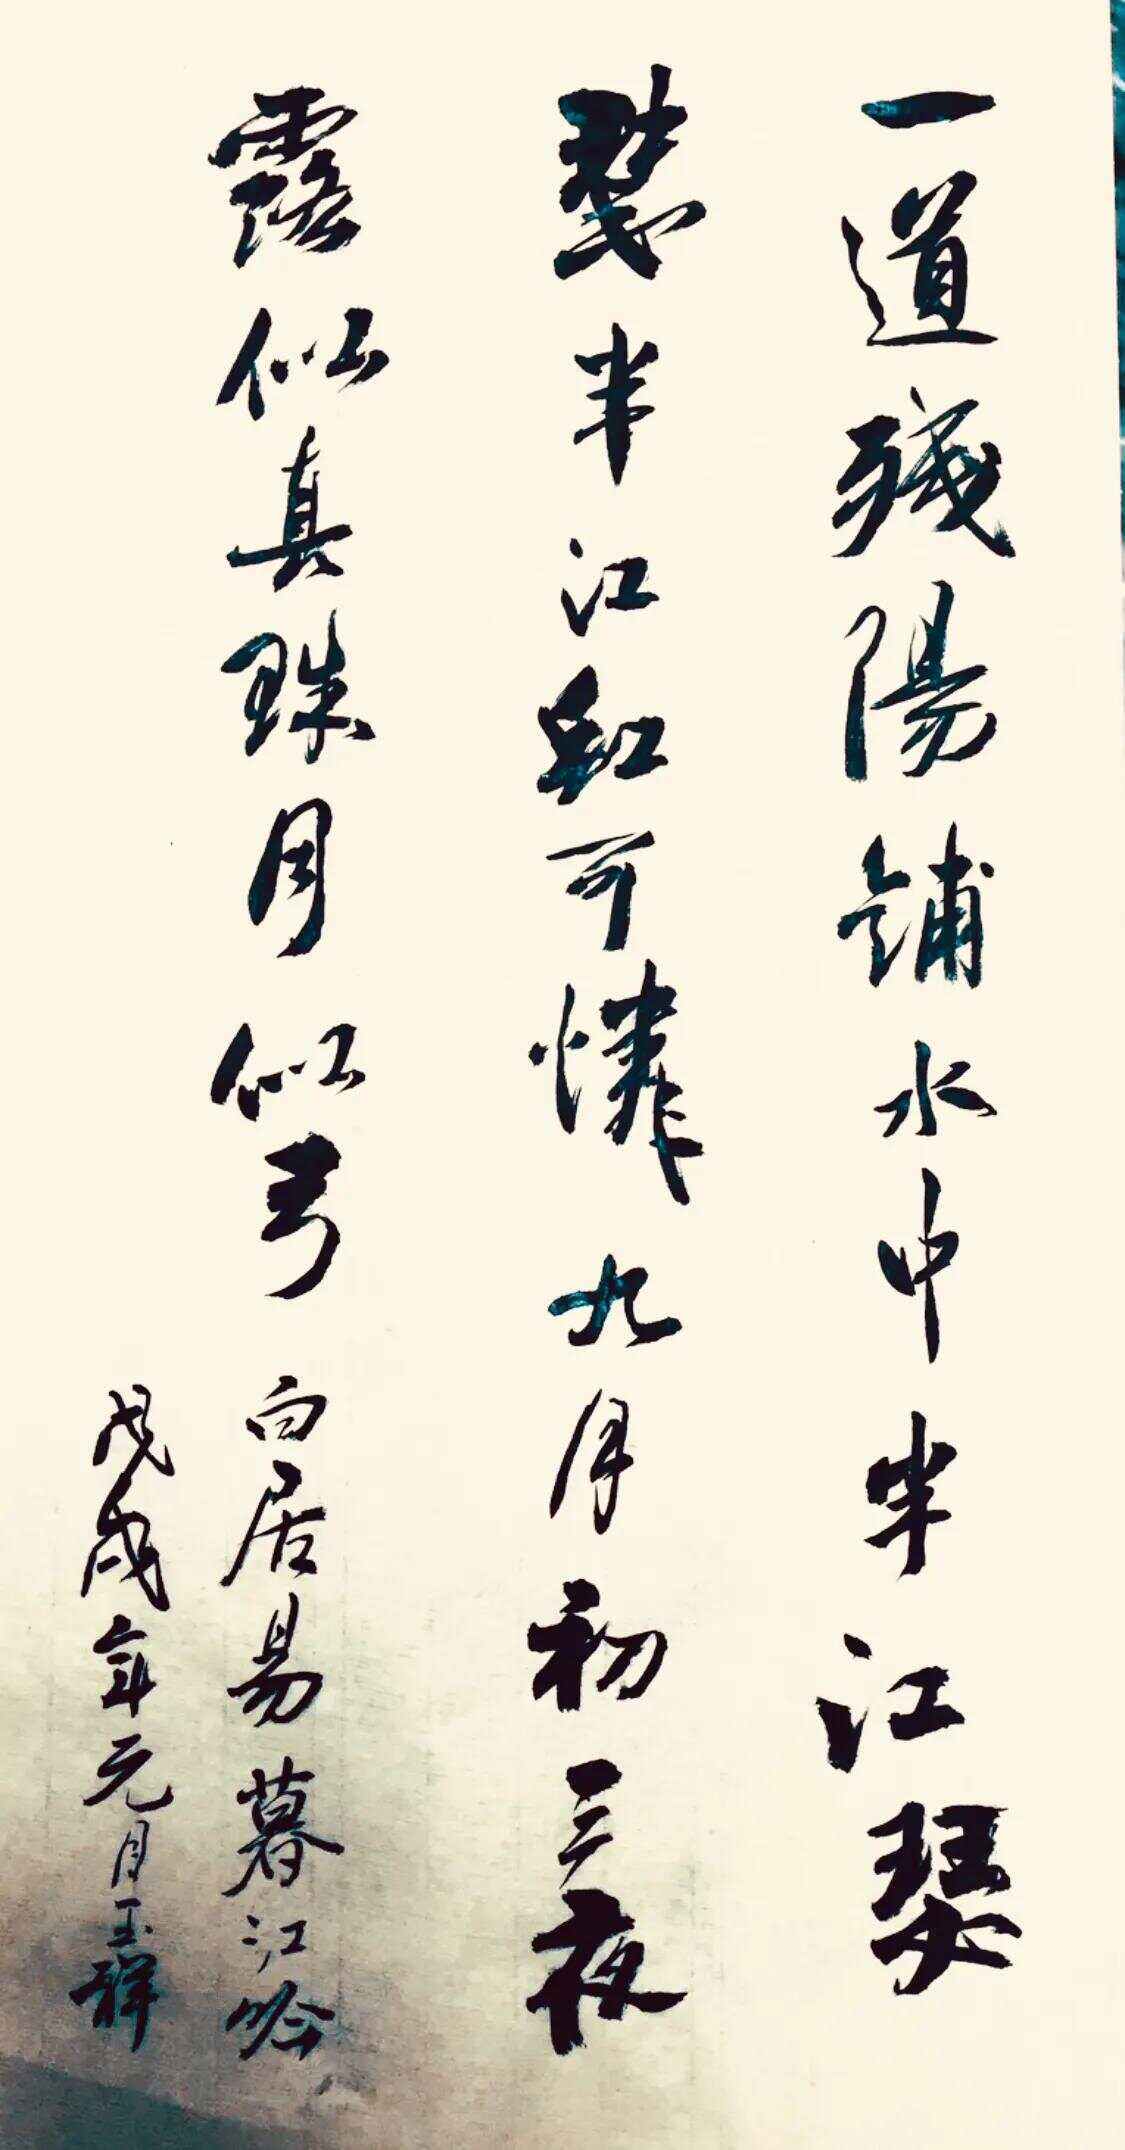 一道殘陽鋪水中半江瑟
瑟半江紅可憐九月初三夜
露似真珠月似弓 白居易暮江吟
戊戌年元月玉